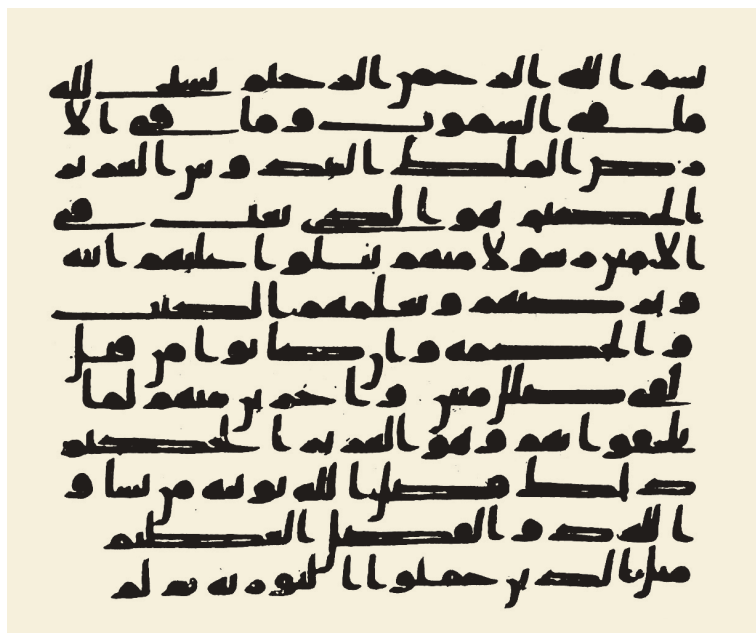 بسم الله الرحمن الرحيم يسبح لله
ما في السموت وما في الا
رض الملك القدوس العزيز
الحكيم هو الذي بعث في
الامين رسولا منهم يتلوا عليهم ايته
و يزكيهم و يعلمهم الكتب
و الحكمة و ان كانوا من قبل
لفي ضلل مبين و اخرين منهم لما
يلحقوا بهم و هو العزيز الحكيم
ذلك فضل الله يوتيه من يشا و
الله ذو الفضل العظيم
مثل الذين حملوا التورية ثم لم